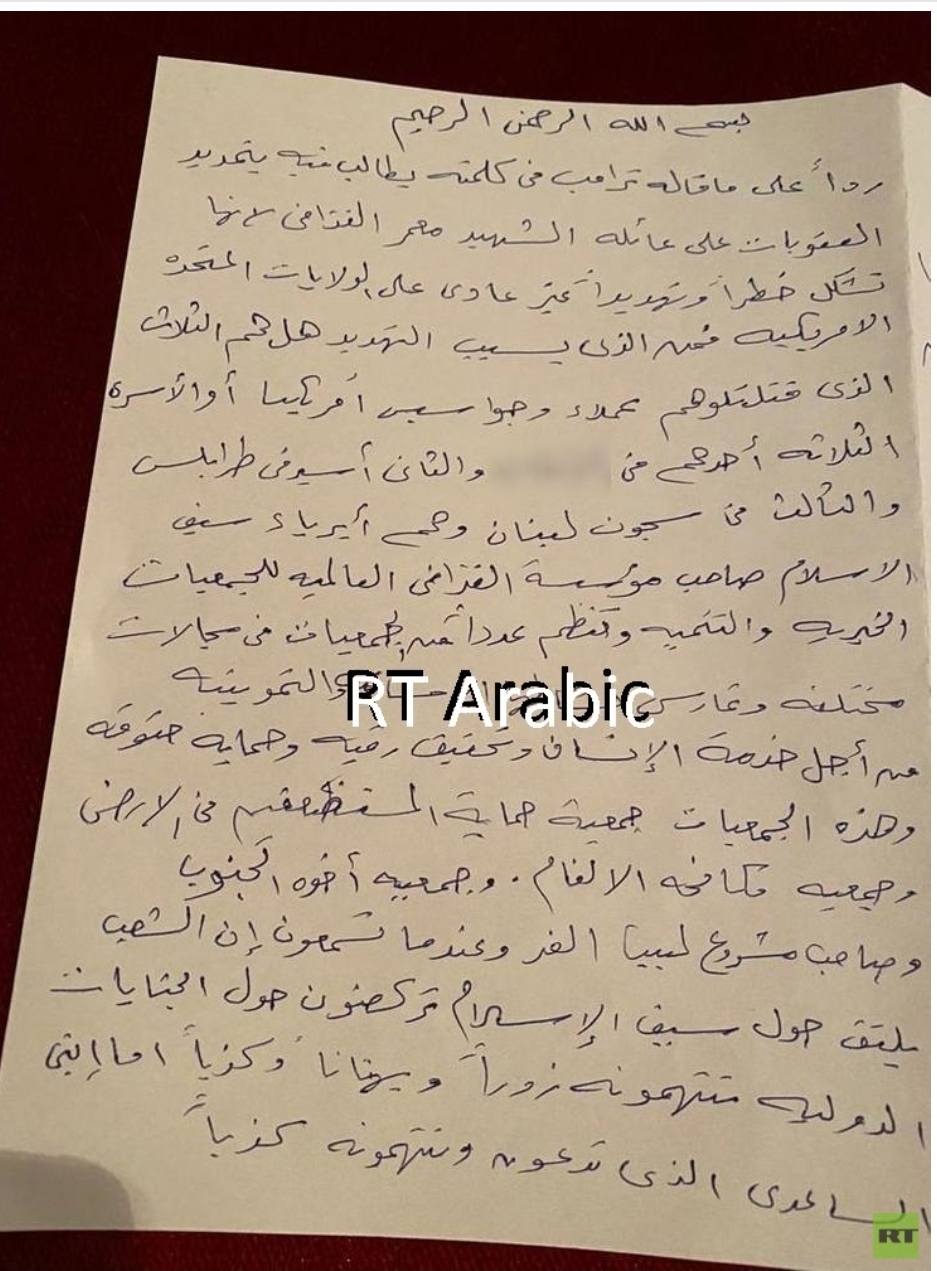 بسم الله الرحمن الرحيم
رداً على ماقاله ترامب فى كلمته يطالب فيه بتمديد
العقوبات على عائله الشهيد معمر القذافى لانها
تشكل خطراً وتهديداً غير عادى على الولايات المتحده
الامريكيه فمن الذى يسبب التهديد هل هم الثلاث
الذى قتلتلوهم عملاء وجواسيس أمريكيا أو الأسره
الثلاثه أحدهم فى والثانى أسير فى طرابلس
والثالث فى سجون لبنان وهم أبرياء سيف
الاسلام صاحب مؤسسة القذافى العالميه للجمعيات
الخيريه والتنميه وتنظم عدداً من الجمعيات فى مجالات
مختلفه وتمارس والتموينيه
من أجل خدمة الإنسان وتحقيق رقيه وحمايه حقوقه
وهذه الجمعيات جمعية حماية المستضعفين فى الارض
وجمعيه مكافحه الالغام . وجمعيه أخوه الجنوب
وصاحب مشروع ليبيا الغد وعندما تسمعون إن الشعب
يلتف حول سيف الإسلام تركضون حول الجنايات
الدوليه تتهمونه زوراً وبهتانا وكذباً اما إبنى
الساعدى الذى تدعون وتتهمونه كذباً
RT Arabic
RT